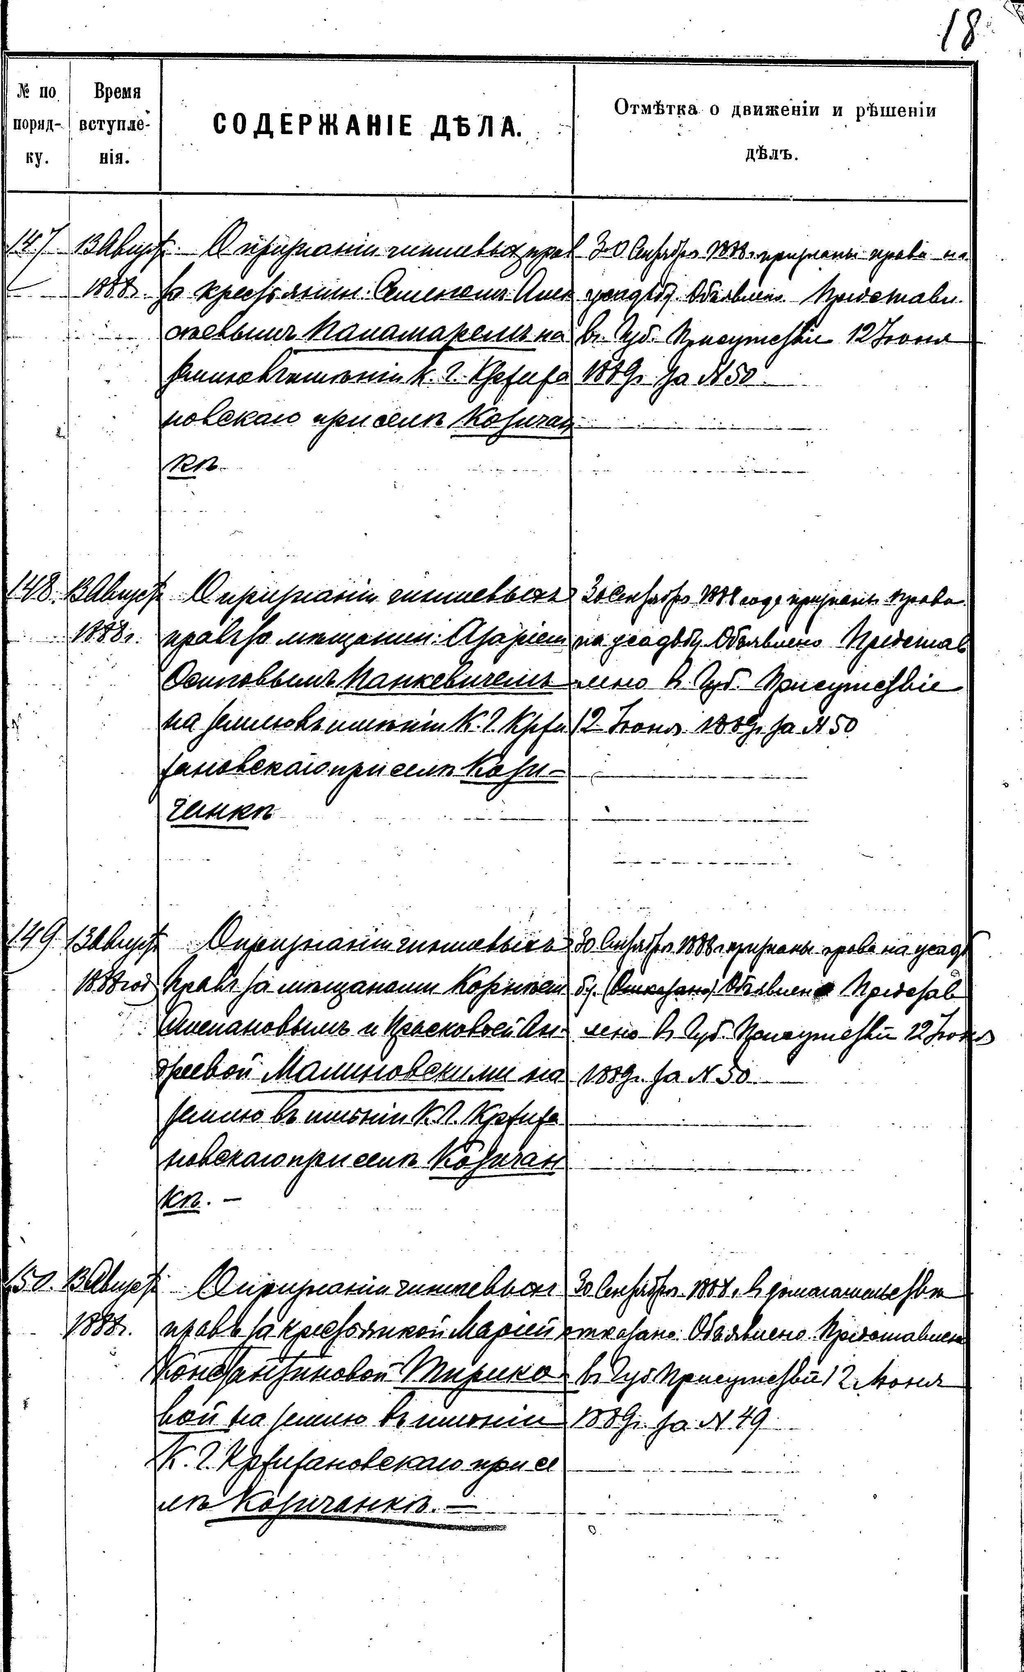 18
№ по поряд-ку.
Время вступле-нія.
СОДЕРЖАНІЕ ДѢЛА.
Отмѣтка о движеніи и рѣшеніи
дѣлъ.
147
13 Август.
1888г.
О признаніи чиншевыхъ прав
за крестьянин.
Понамаремъ на
землю въ имѣніи К. Г.
новскаго при селѣ Козичан
кѣ.
30 Сентября 1888г. признаны права на
усадьбу. Объявлено. Представл.
въ Губ. Присутствіе 12 Іюня
1889г. за № 50
148.
13 Август
1888г.
О признаніи чиншевыхъ
правъ за мещанин. Азаріем
Осиповымъ Панкевичемъ
на землю въ имѣніи К. Г.
при селѣ Кози-
чанкѣ
30 Сентября 1888 года признаны права
на усадьбу. Объявлено Представ
лено въ Губ. Присутствіе
12 Іюня 1889г. за № 50
149
13 Август
1888 год
О признаніи чиншевыхъ
Правъ за мещанами Корниемъ
Степановымъ и Прасковьей Ан-
дреевой Малиновскими на
землю въ имѣніи К. Г.
новскаго при селѣ Козичан
кѣ. –
30 Сентября 1888г. признаны права на усадь
бу. (Отказано) Объявлено Представ
лено въ Губ. Присутствіи 12 Іюня
1889г. за № 50
150.
13 Август
1888г.
О признаніи чиншевыхъ
правъ за крестьянкой Маріей
Константиновой
вой на землю въ имѣніи
К. Г.
при се
лѣ Козичанкѣ. –
30 Сентября 1888г. въ домагательствѣ
отказано. Объявлено. Представлено
въ Губ Присутствіи 12 Іюня
1889г. за № 49